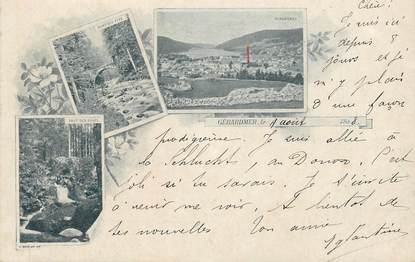 Chérie!
Je suis ici
depuis 8
jours et j'e
m'y plais
d'une façon
GÉRARDMER, le 1 août 189
prodigieuse. Je suis allée à
la Schlucht, au Donon. C'est
joli si tu savais. Je t'invite
à venir me voir. A bientôt de
tes nouvelles Ton amie
Eglantine
GÉRARDMER
SAUT DES CUVES